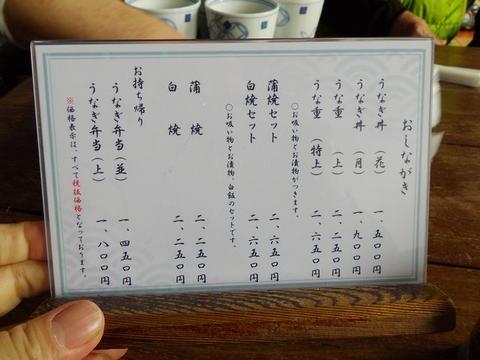 おしながき
うなぎ丼 (花) 一、五〇〇円
うなぎ丼 (月) 一、九〇〇円
うな重 (上) 二、二五〇円
うな重 (特上) 二、六五〇円
○お吸い物とお漬物がつきます。
蒲焼セット 二、六五〇円
白焼セット 二、六五〇円
○お吸い物とお漬物、白飯のセットです。
蒲焼 二、二五〇円
白焼 二、二五〇円
お持ち帰り
うなぎ弁当(並) 一、四五〇円
うなぎ弁当(上) 一、八〇〇円
※価格表示は、すべて税抜価格となっております。